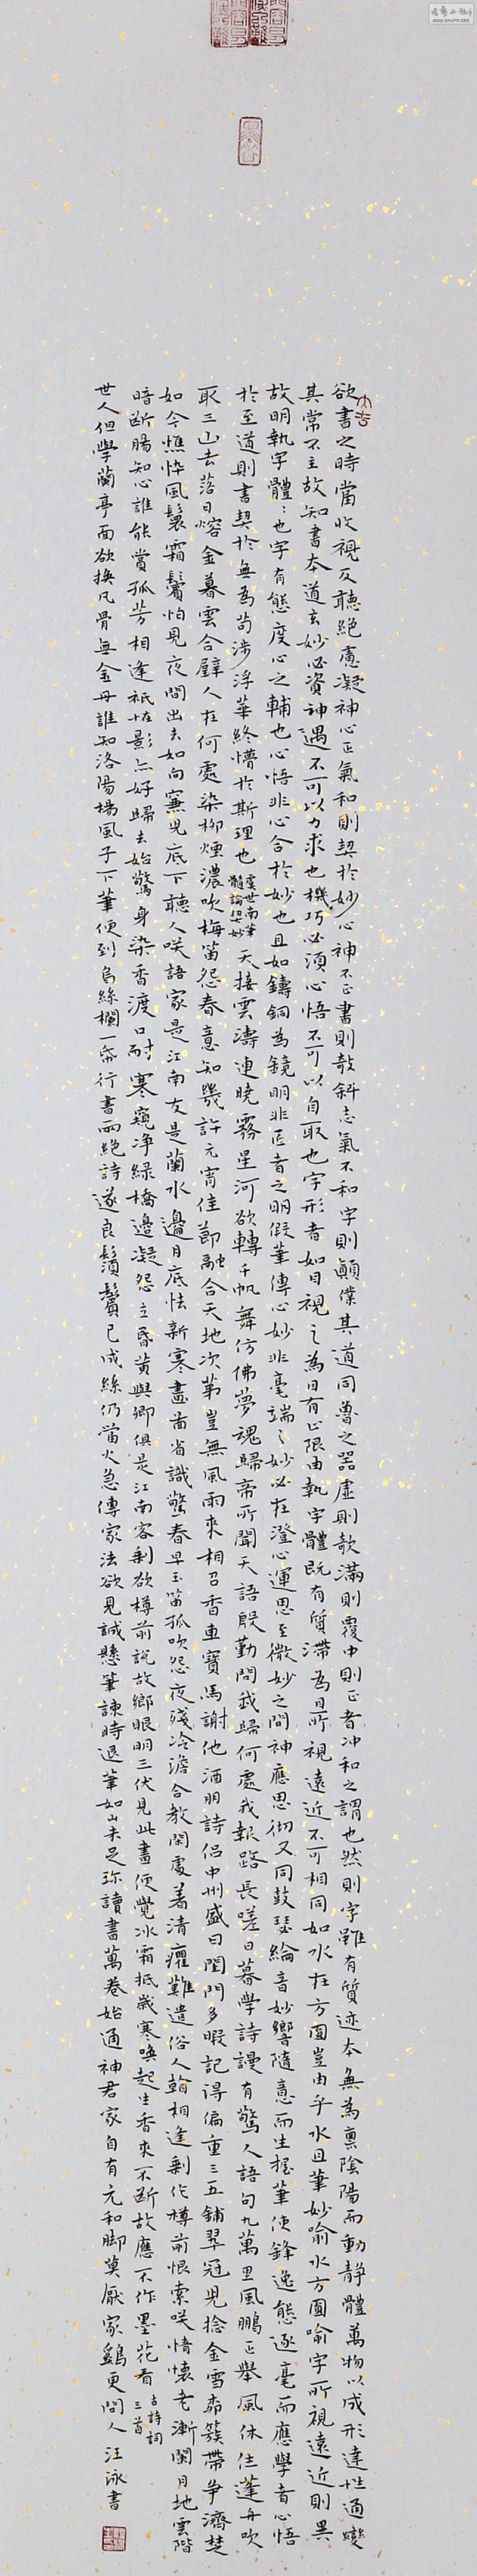 欲書之時當收視反聽絕慮凝神心正氣和則契於妙心神不正書則敧斜志氣不和字則顛仆其道同魯之器虛則欹滿則覆中則正者冲和之謂也然則字雖有質迹本無為禀陰陽而動靜體萬物以成形達性通變
其常不主故知書本道玄妙必資神遇不可以力求也機巧必須心悟不可以自取也字形者如目視之為目有止限由執字體既有質滯為目所視遠近不可相同如水在方圓豈由乎水且筆妙喻水方圓喻字所視遠近則異
故明執字體:也字有態度心之輔也心悟非心合於妙也且如鑄銅為鏡明非匠者之明假筆傳心妙非毫端之妙必在澄心運思至微妙之間神應思徹又同鼓瑟綸音妙響隨意而生握筆使鋒逸態逐毫而應學者心悟
於至道則書契於無為苟涉浮華終懵於斯理也 虞世南筆髓論契妙 天接雲濤連曉霧星河欲轉千帆舞仿佛夢魂歸帝所聞天語殷勤問我歸何處我報路長嗟日暮學詩謾有驚人語句九萬里風鵬正舉風休住蓬舟吹
取三山去落日熔金暮雲合璧人在何處染柳煙濃吹梅笛怨春意知幾許元宵佳節融合天地次第豈無風雨來相召香車寶馬謝他酒朋詩侶中州盛日閨門多暇記得偏重三五鋪翠冠兒捻金雪柳簇帶爭濟楚
如今憔悴風鬟霜鬢怕見夜間出去如向簾兒底下聽人咲語家是江南友是蘭水邊月底怯新寒畫圖省識驚春早玉笛孤吹怨夜殘冷澹合教閑處着清癯難遣俗人翰相逢剩作樽前恨索咲情懷老漸闌月地雲階
暗斷腸知心誰能賞孤芳相逢祇怪影亦好歸去始驚身染香渡口耐寒窺淨綠橋邊凝怨立昏黃與卿俱是江南客剩欲樽前說故鄉眼明三伏見此畫便覺冰霜抵歲寒喚起生香來不斷故應不作墨花看 古詩詞三首
世人但學蘭亭面欲換凡骨無金丹誰知洛陽楊風子下筆便到烏絲欄一帋行書兩絕詩遂良鬚鬢已成絲仍當火急傳家法欲見誠懸筆諫時退筆如山未足珍讀書萬卷始通神君家自有元和脚莫厭家雞更問人 汪泳書
WWW.SHUFA.ORG